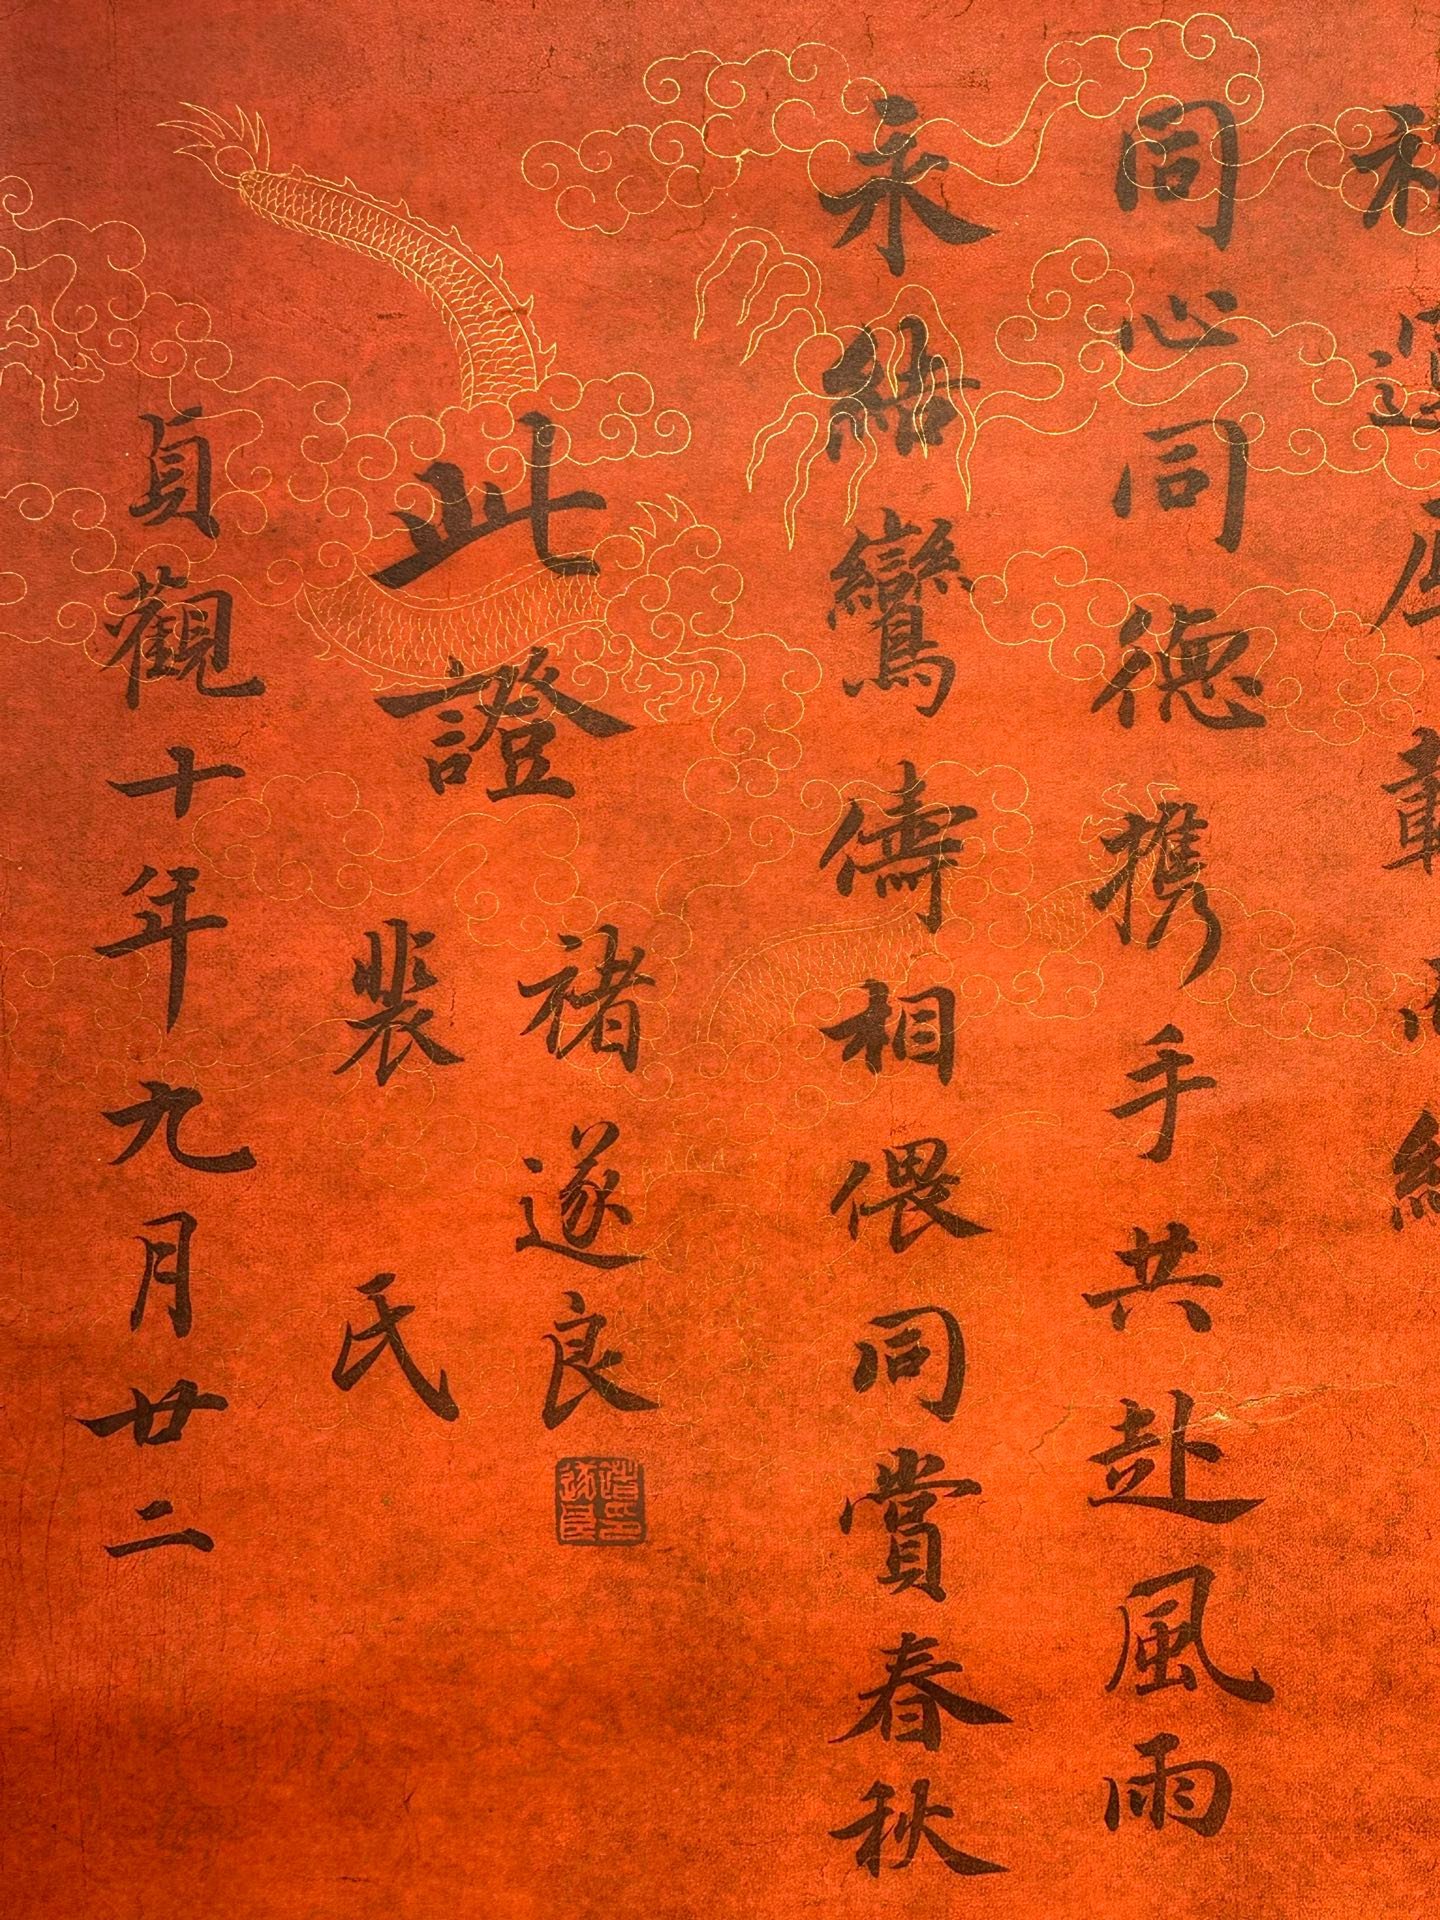 同心同德携手共赴風雨
永結鸞儔相偎同賞春秋
此證
褚遂良
裴氏
貞觀十年九月廿二